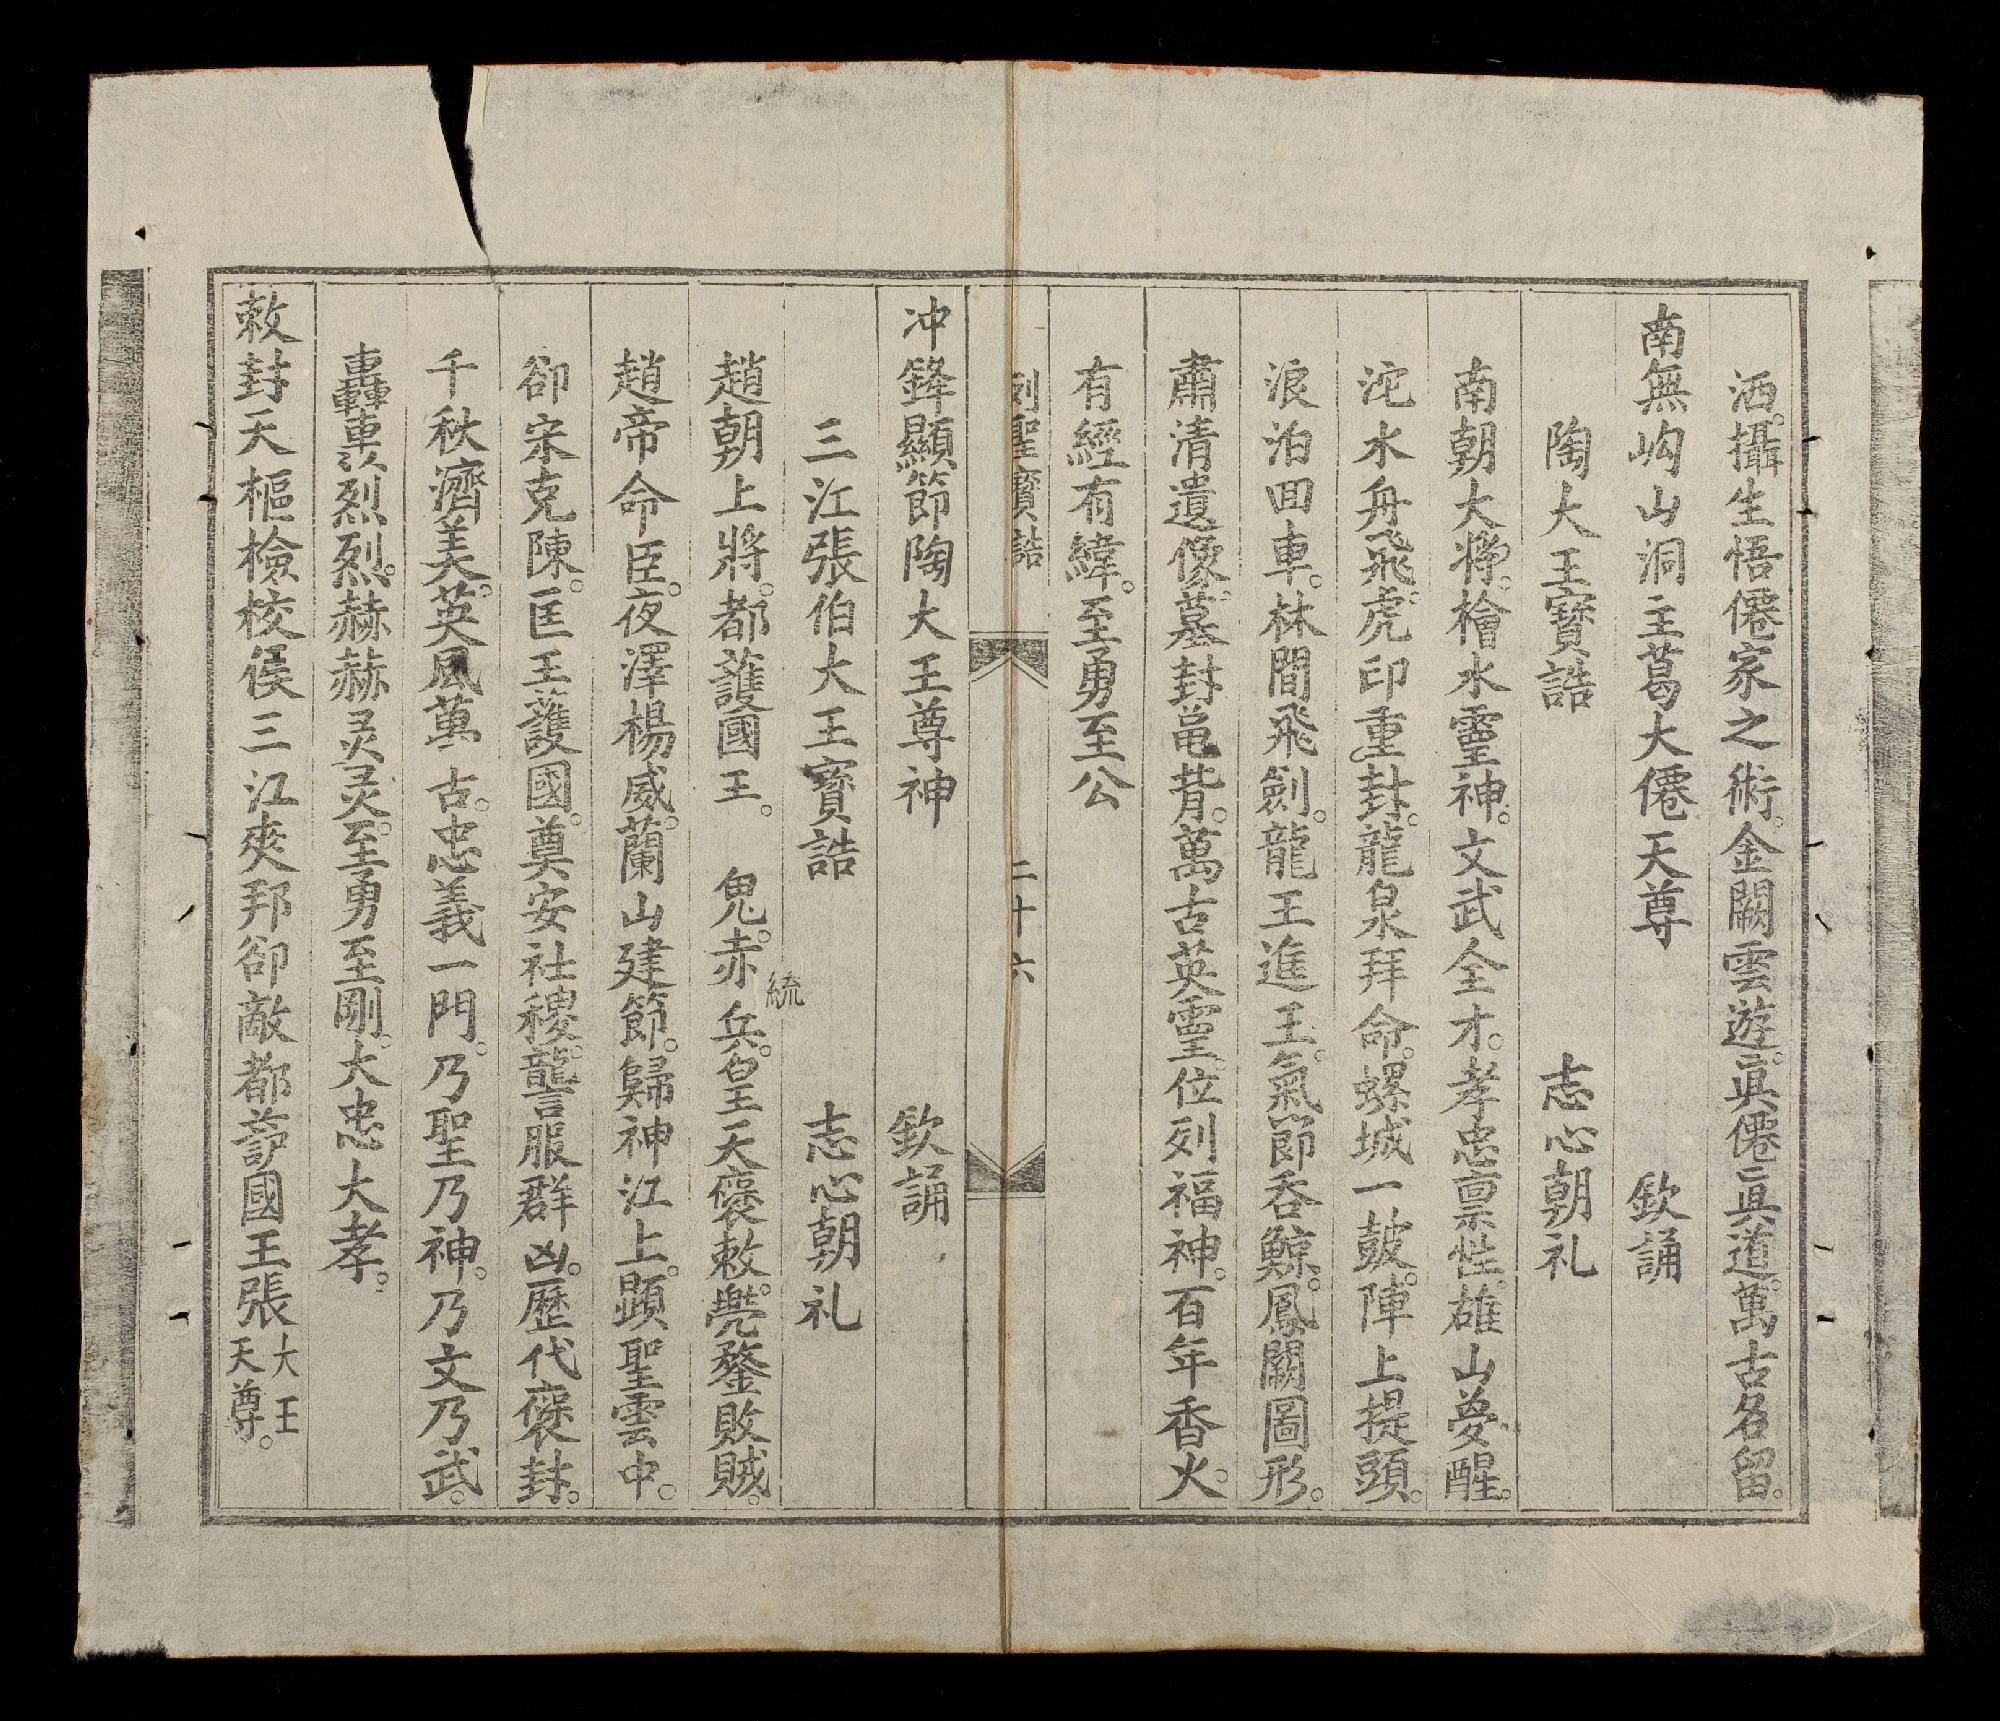 洒。攝生悟僊家之術。金闕雲遊。眞僊眞道。萬古名留。
南無岣山洞主葛大僊天尊　欽誦
陶大王寶誥　志心朝礼
南朝大將。檜水靈神。文武全才。孝忠禀性。雄山夢醒。
沱水舟飛。虎印重封。龍泉拜命。螺城一鼓。陣上提頭。
浪泊回車。林間飛劍。龍王進王。氣節吞鯨。鳳闕圖形。
肅清遺像。墓封黽背。萬古英靈。位列福神。百年香火。
有經有緯。至勇至公
列聖寳誥　二十六
冲鋒顯節陶大王尊神　欽誦
三江張伯大王寳誥　志心朝礼
趙朝上將。都護國王。鬼。赤兵。皇天褒敕。兠鍪敗賊。
統
趙帝命臣。夜澤楊威。蘭山建節。歸神江上。顕聖雲中。
卻宋克陳。匡王護國。奠安社稷。讋服群凶。歷代褒封。
千秋濟美。英風萬古。忠義一門。乃聖乃神。乃文乃武。
轟轟烈烈。赫赫灵灵。至勇至剛。大忠大孝。
敕封天樞檢校侯三江夾邦卻敵都護國王張大王天尊。